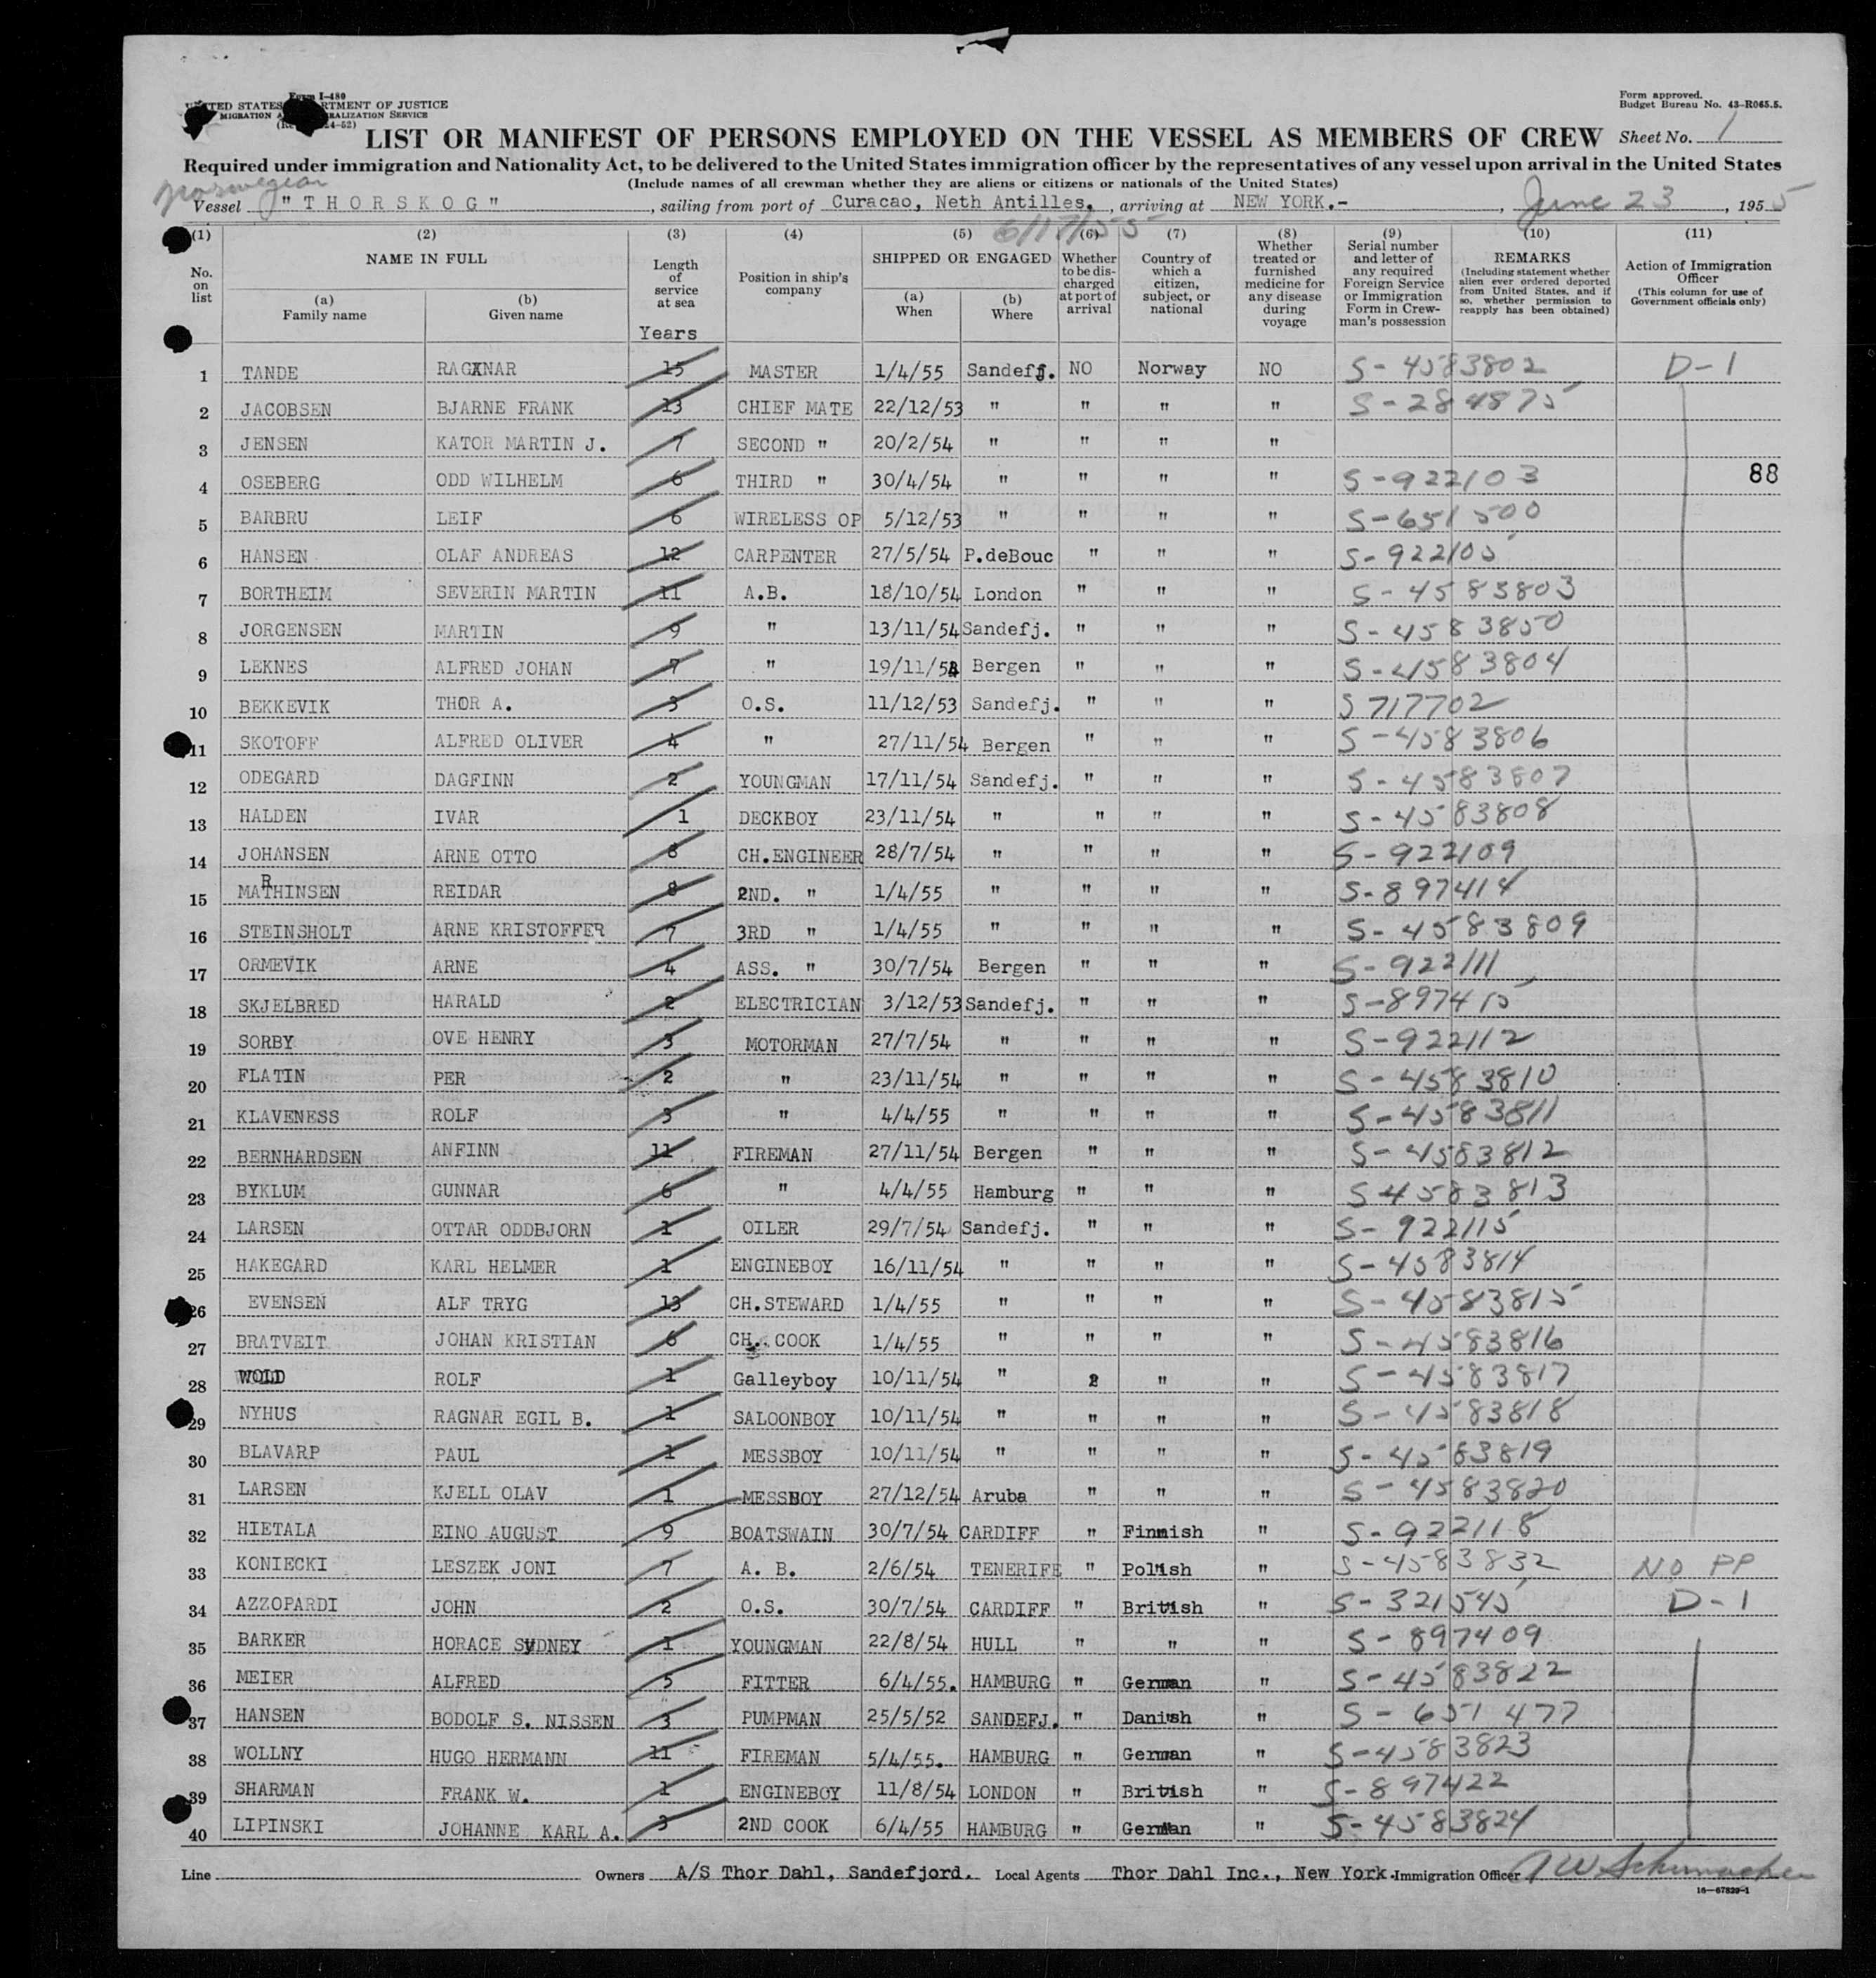 Form I-480
UNITED STATES DEPARTMENT OF JUSTICE
IMMIGRATION AND NATURALIZATION SERVICE
Form approved.
Budget Bureau No. 43-R065.5.
LIST OR MANIFEST OF PERSONS EMPLOYED ON THE VESSEL AS MEMBERS OF CREW Sheet No. 1
Required under immigration and Nationality Act, to be delivered to the United States immigration officer by the representatives of any vessel upon arrival in the United States
(Include names of all crewman whether they are aliens or citizens or nationals of the United States)
Norwegian
Vessel "THORSKOG", sailing from port of Curacao, Neth Antilles., arriving at NEW YORK.-, June 23, 1955
6/17/55
(1) (2) (3) (4) (5) (6) (7) (8) (9) (10) (11)
No. on list
NAME IN FULL
(a) Family name
(b) Given name
Length of service at sea
Years
Position in ship's company
SHIPPED OR ENGAGED
(a) When
(b) Where
Whether to be discharged at port of arrival
Country of which a citizen, subject, or national
Whether treated or furnished medicine for any disease during voyage
Serial number and letter of any required Foreign Service or Immigration Form in Crewman's possession
REMARKS
(Including statement whether alien ever ordered deported from United States, and if so, whether permission to reapply has been obtained)
Action of Immigration Officer
(This column for use of Government officials only)
1 TANDE RAGNAR 15 MASTER 1/4/55 Sandefj. NO Norway NO S-4583802 D-1
2 JACOBSEN BJARNE FRANK 13 CHIEF MATE 22/12/53 " " " " S-284875
3 JENSEN KATOR MARTIN J. 7 SECOND " 20/2/54 " " " "
4 OSEBERG ODD WILHELM 6 THIRD " 30/4/54 " " " " S-922103 88
5 BARBRU LEIF 6 WIRELESS OP 5/12/53 " " " " S-651500
6 HANSEN OLAF ANDREAS 12 CARPENTER 27/5/54 P.deBouc " " " S-922105
7 BORTHEIM SEVERIN MARTIN 11 A.B. 18/10/54 London " " " S-4583803
8 JORGENSEN MARTIN 9 " 13/11/54 Sandefj. " " " S-4583850
9 LEKNES ALFRED JOHAN 7 " 19/11/54 Bergen " " " S-4583804
10 BEKKEVIK THOR A. 3 O.S. 11/12/53 Sandefj. " " " S 717702
11 SKOTOFF ALFRED OLIVER 4 " 27/11/54 Bergen " " " S-4583806
12 ODEGARD DAGFINN 2 YOUNGMAN 17/11/54 Sandefj. " " " S-4583807
13 HALDEN IVAR 1 DECKBOY 23/11/54 " " " " S-4583808
14 JOHANSEN ARNE OTTO 8 CH.ENGINEER 28/7/54 " " " " S-922109
15 MARTHINSEN REIDAR 8 2ND. " 1/4/55 " " " " S-897414
16 STEINSHOLT ARNE KRISTOFFER 7 3RD " 1/4/55 " " " " S-4583809
17 ORMEVIK ARNE 4 ASS. " 30/7/54 Bergen " " " S-922111
18 SKJELBRED HARALD 2 ELECTRICIAN 3/12/53 Sandefj. " " " S-897415
19 SORBY OVE HENRY 3 MOTORMAN 27/7/54 " " " " S-922112
20 FLATIN PER 2 " 23/11/54 " " " " S-4583810
21 KLAVENESS ROLF 3 " 4/4/55 " " " " S-4583811
22 BERNHARDSEN ANFINN 11 FIREMAN 27/11/54 Bergen " " " S-4583812
23 BYKLUM GUNNAR 6 " 4/4/55 Hamburg " " " S-4583813
24 LARSEN OTTAR ODDBJORN 1 OILER 29/7/54 Sandefj. " " " S-922115
25 HAKEGARD KARL HELMER 1 ENGINEBOY 16/11/54 " " " " S-4583814
26 EVENSEN ALF TRYG 13 CH.STEWARD 1/4/55 " " " " S-4583815
27 BRATVEIT JOHAN KRISTIAN 6 CH. COOK 1/4/55 " " " " S-4583816
28 WOLD ROLF 1 Galleyboy 10/11/54 " " " " S-4583817
29 NYHUS RAGNAR EGIL B. 1 SALOONBOY 10/11/54 " " " " S-4583818
30 BLAVARP PAUL 1 MESSBOY 10/11/54 " " " " S-4583819
31 LARSEN KJELL OLAV 1 MESSBOY 27/12/54 Aruba " " " S-4583820
32 HIETALA EINO AUGUST 9 BOATSWAIN 30/7/54 CARDIFF " Finnish " S-922118
33 KONIECKI LESZEK JONI 7 A. B. 2/6/54 TENERIFE " Polish " S-4583832 NO PP
34 AZZOPARDI JOHN 2 O.S. 30/7/54 CARDIFF " British " S-321545 D-1
35 BARKER HORACE SYDNEY 1 YOUNGMAN 22/8/54 HULL " " " S-897409
36 MEIER ALFRED 5 FITTER 6/4/55. HAMBURG " German " S-4583822
37 HANSEN BODOLF S. NISSEN 3 PUMPMAN 25/5/52 SANDEFJ. " Danish " S-651477
38 WOLLNY HUGO HERMANN 11 FIREMAN 5/4/55. HAMBURG " German " S-4583823
39 SHARMAN FRANK W. 1 ENGINEBOY 11/8/54 LONDON " British " S-897422
40 LIPINSKI JOHANNE KARL A. 3 2ND COOK 6/4/55 HAMBURG " German " S-4583824
Line Owners A/S Thor Dahl, Sandefjord. Local Agents Thor Dahl Inc., New York. Immigration Officer A W Schumacher
16-67829-1